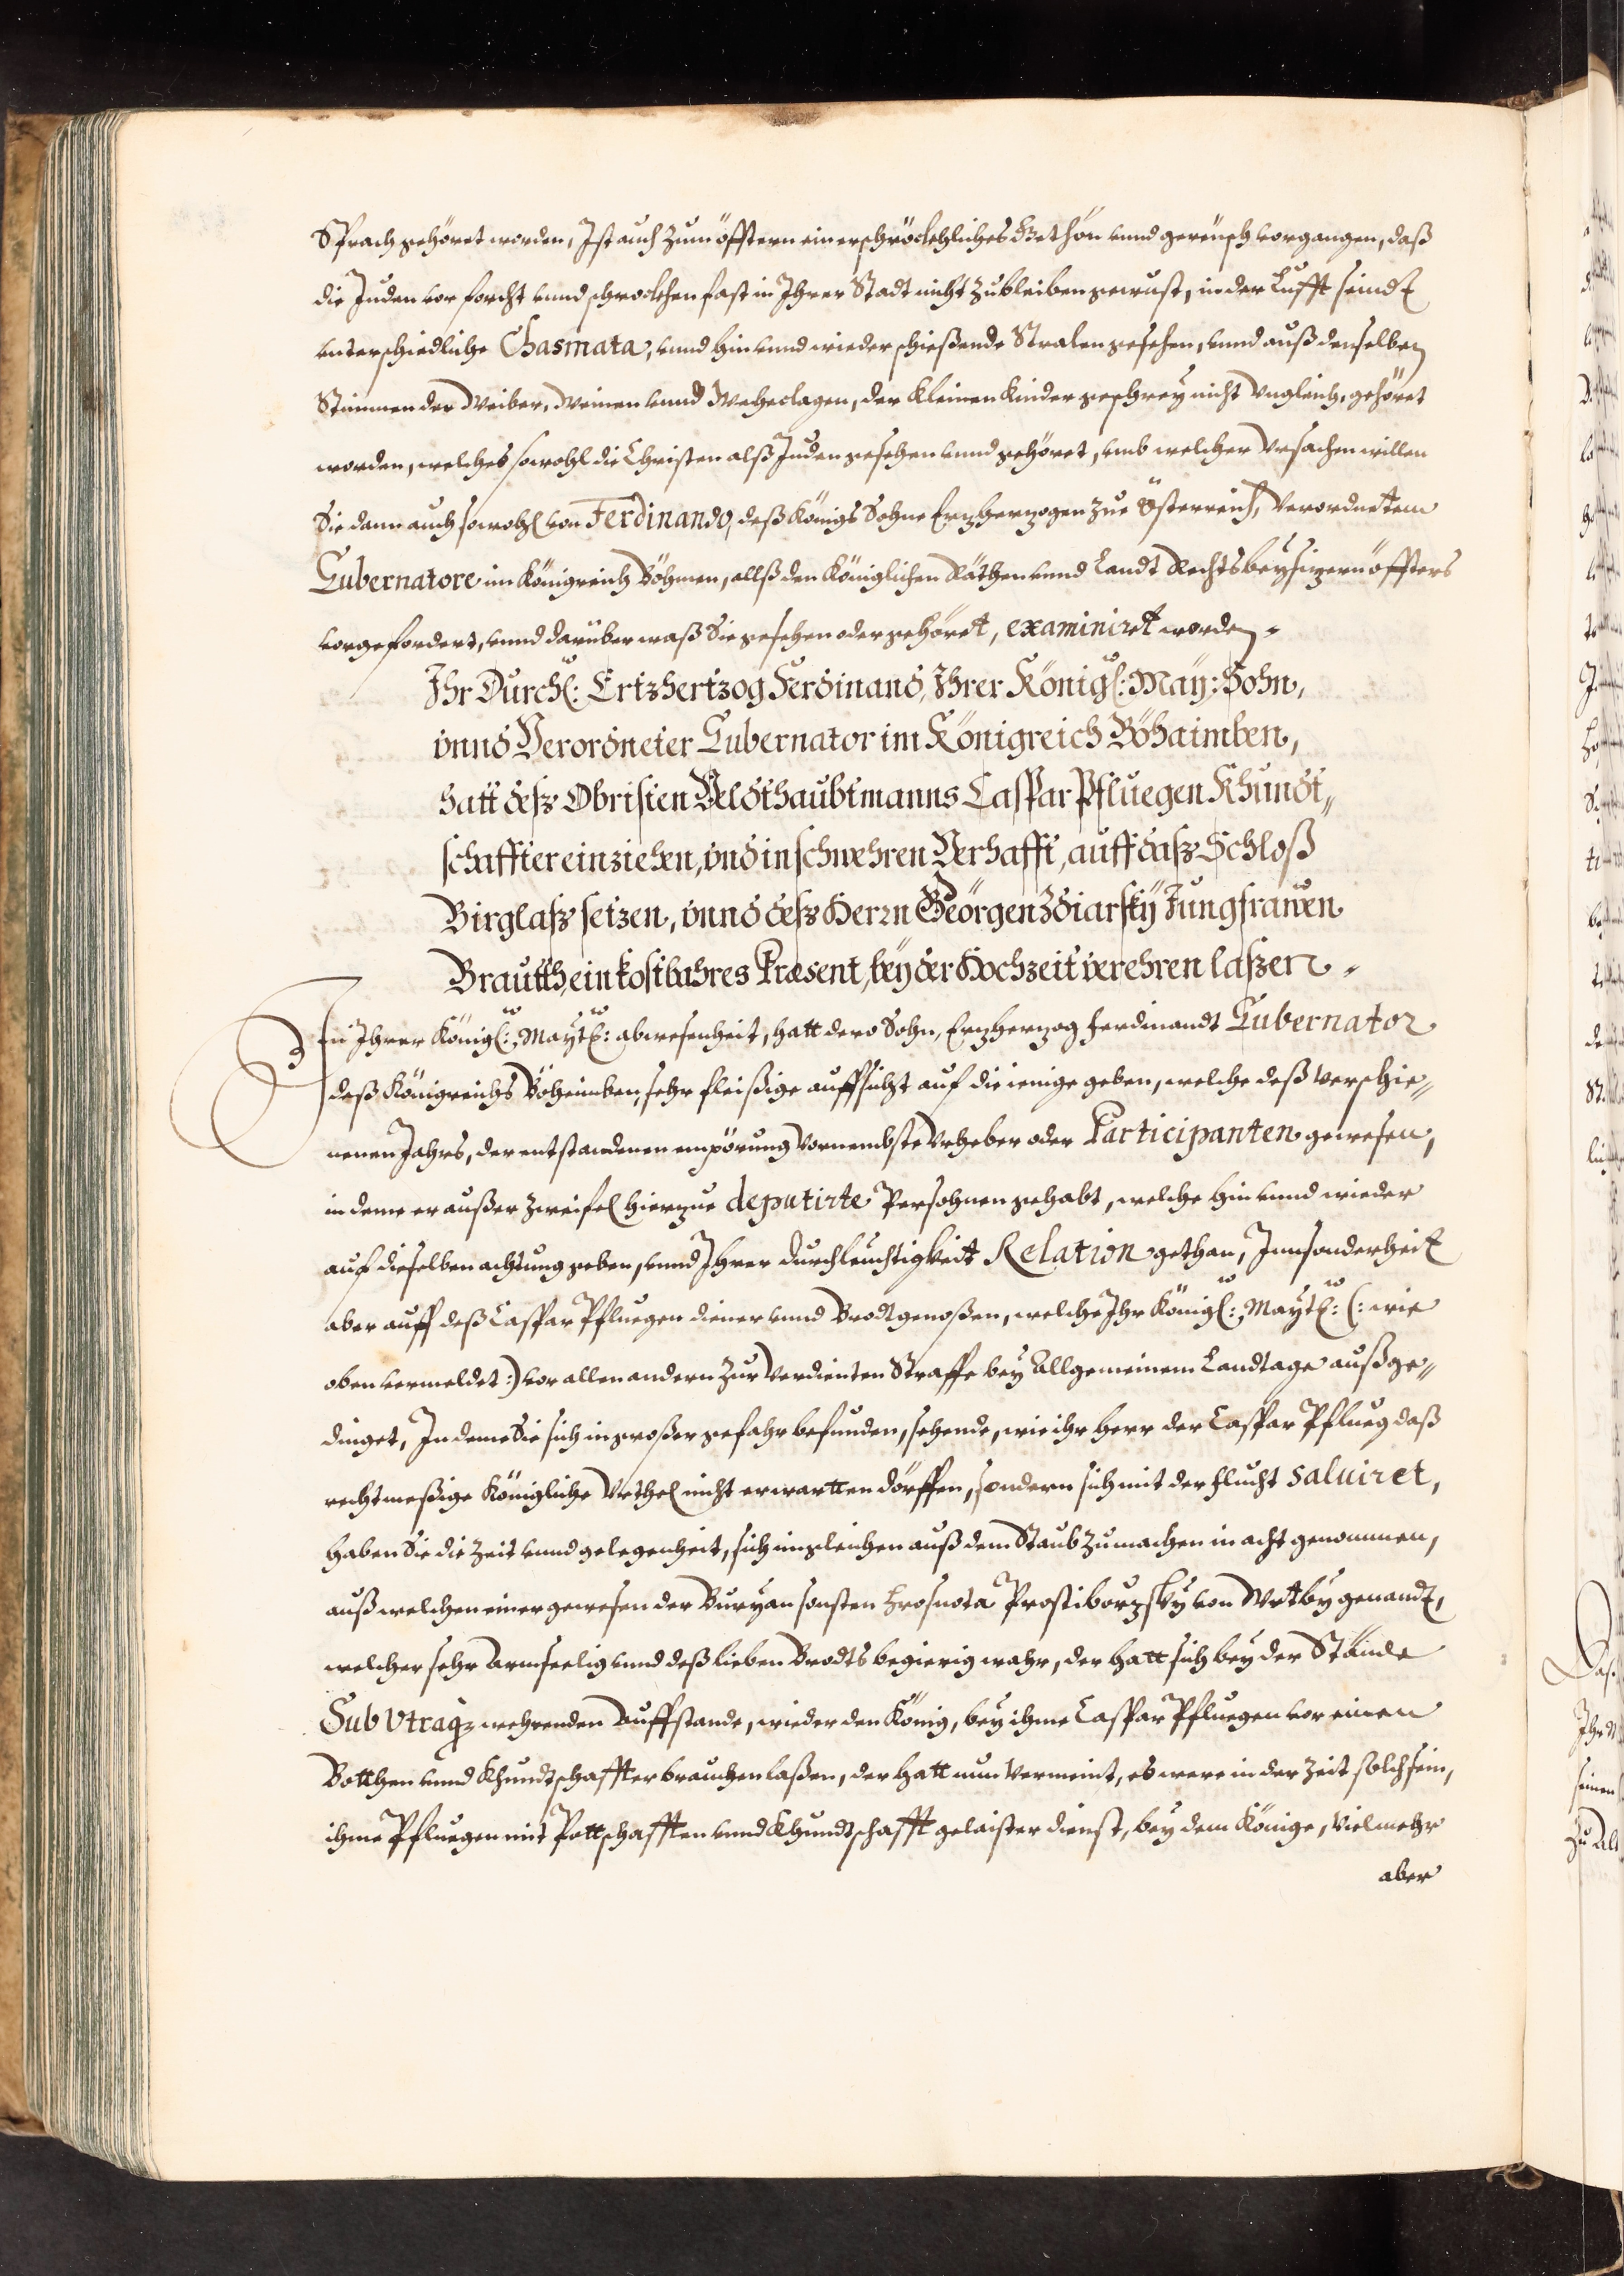 Sprach gehöret worden, Ist auch zum öfftern ein erschröckhliches Gethön vnnd gereüsch vorgangen, daß
die Juden vor forcht vnnd schrockhen fast in Ihrer Stadt nicht zubleiben gewust, in der Lufft seindt
vnterschiedliche Chasmata, vnnd hin vnnd wieder schießende Stralen gesehen, vnnd auß denselben
Stimmen der Weiber, Weinen vnnd Weheclagen, der Kleinen Kinder geschrey nicht Vngleich, gehöret
worden, welches sowohl die Christen alß Juden gesehen vnnd gehöret, vmb welcher Vrsachen willen
Sie dann auch sowohl von Ferdinando, deß Königs Sohne Erzherzogen zue Österreich, Verordnettem
Gubernatore im Königreich Böhmen, allß den Königlichen Räthen vnnd Landt Rechts beysizern öffters
vorgefordert, vnnd darüber waß Sie gesehen oder gehöret, examiniret worden.
Ihr Durchl: Ertzhertzog Ferdinand, Ihrer Königl: May: Sohn,
vnnd Verordneter Gubernator im Königreich Böhaimben,
hatt deß Obristen Veldthaubtmanns Caspar Pfluegen Khundt„
schaffter einziehen, vnd in schwehren Verhafft, auff daß Schloß
Birglaß setzen, vnnd deß Herrn Georgen Zdiarsky Jungfrawen
Brautth, ein kostbahres Præsent, bey der Hochzeit verehren laßen.
In Ihrer Königl: Maytt: abwesenheit, hatt dero Sohn, Erzherzog Ferdinandt Gubernator
deß Königreichs Böheimben, sehr fleißige auffsicht auf die ienige geben, welche deß verschie„
nenen Jahrs, der entstandenen empörung Vornembste Vrheber oder Participanten gewesen,
in deme er außer zweifel hierzue deputirte Persohnen gehabt, welche hin vnnd wieder
auf dieselben achtung geben, vnnd Ihrer Durchleuchtigkeit Relation gethan, Innsonderheit
aber auff deß Caspar Pfluegen diener vnnd Brodtgenoßen, welche Ihr Königl: Maytt: (: wie
oben vermeldet :) vor allen andern zur Verdienten Straffe bey Allgemeinem Landtage außge„
dinget, In deme Sie sich in großer gefahr befunden, sehende, wie ihr Herr der Caspar Pflueg daß
rechtmeßige Königliche Vrthel nicht erwartten dörffen, sondern sich mit der flucht salviret,
haben Sie die Zeit vnnd gelegenheit, sich ingleichen auß dem Staub zumachen in acht genommen,
auß welchen einer gewesen der Buryan sonsten Hrosnota Prostiborzsky von Wrtby genandt,
welcher sehr Armseelig vnnd deß lieben Brodts begierig wahr, der hatt sich bey der Stände
Sub Vtraq; wehrenden Auffstande, wieder den König, bey ihme Caspar Pfluegen vor einen
Botthen vnnd Khundtschaffter brauchen laßen, der hatt nun Vermeint, es were in der Zeit solch sein,
ihme Pfluegen mit Pottschafften vnnd Khundtschafft gelaister dienst, bey dem Könige, Vielmehr
aber